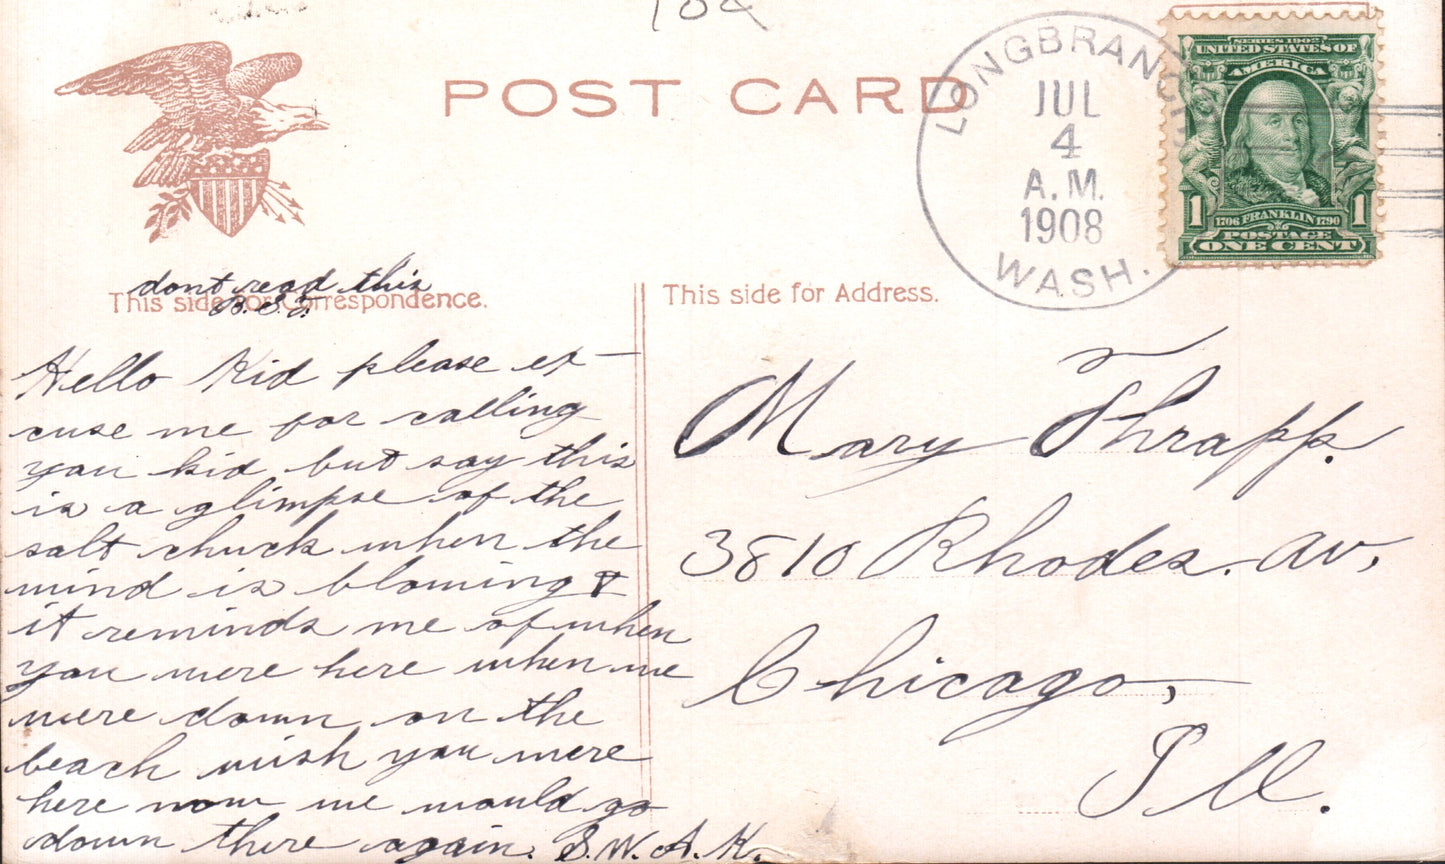 10¢
POST CARD
LONGBRANCH
JUL
4
A.M.
1908
WASH.
SERIES 1902
UNITED STATES OF
AMERICA
1 1706 FRANKLIN 1790 1
POSTAGE
ONE CENT
dont read this
This side for Correspondence.
This side for Address.
Hello Kid please ex-
cuse me for calling
you kid, but say this
is a glimpse of the
salt chuck when the
wind is blowing &
it reminds me of when
you were here when we
were down on the
beach wish you were
here now we would go
down there again. S.W.A.K.
Mary Thrapp.
3810 Rhodes. av,
Chicago,
Ill.